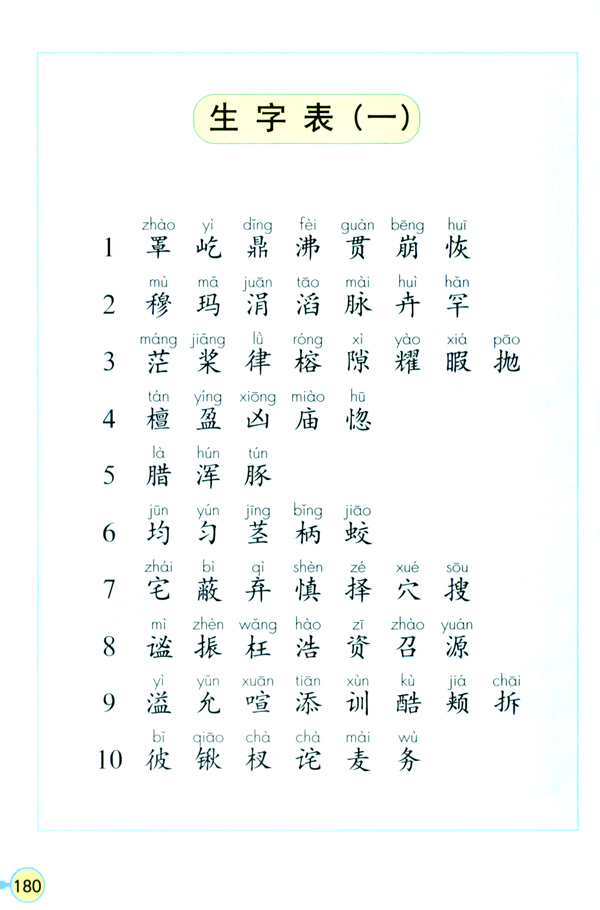 生字表(一)
zhào yì dǐng fèi guàn bēng huī
1 罩 屹 鼎 沸 贯 崩 恢
mù mǎ juān tāo mài huì hǎn
2 穆 玛 涓 滔 脉 卉 罕
máng jiǎng lǜ róng xì yào xiá pāo
3 茫 桨 律 榕 隙 耀 暇 抛
tán yíng xiōng miào hū
4 檀 盈 凶 庙 惚
là hún tún
5 腊 浑 豚
jūn yún jīng bǐng jiāo
6 均 匀 茎 柄 蛟
zhái bì qì shèn zé xué sōu
7 宅 蔽 弃 慎 择 穴 搜
mì zhèn wǎng hào zī zhào yuán
8 谧 振 枉 浩 资 召 源
yì yǔn xuān tiān xùn kù jiá chāi
9 溢 允 喧 添 训 酷 颊 拆
bǐ qiāo chà chà mài wù
10 彼 锹 杈 诧 麦 务
180